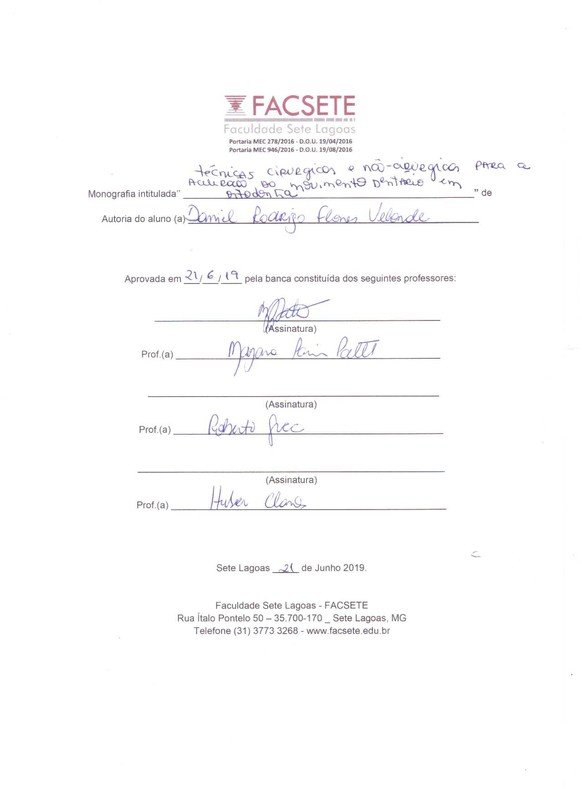 FACSETE
Faculdade Sete Lagoas
Portaria MEC 278/2016 - D.O.U. 19/04/2016
Portaria MEC 946/2016 - D.O.U. 19/08/2016
técnicas cirurgicas e não-cirurgicas PARA a
Aceleração do movimento Dentário em
Monografia intitulada" ortodontia " de
Autoria do aluno (a) Daniel Rodrigo Flores
Aprovada em 21/6/19 pela banca constituída dos seguintes professores:
(Assinatura)
Prof.(a)
(Assinatura)
Prof.(a) Roberto
(Assinatura)
Prof.(a)
Sete Lagoas 21 de Junho 2019.
Faculdade Sete Lagoas - FACSETE
Rua Ítalo Pontelo 50 – 35.700-170 _ Sete Lagoas, MG
Telefone (31) 3773 3268 - www.facsete.edu.br